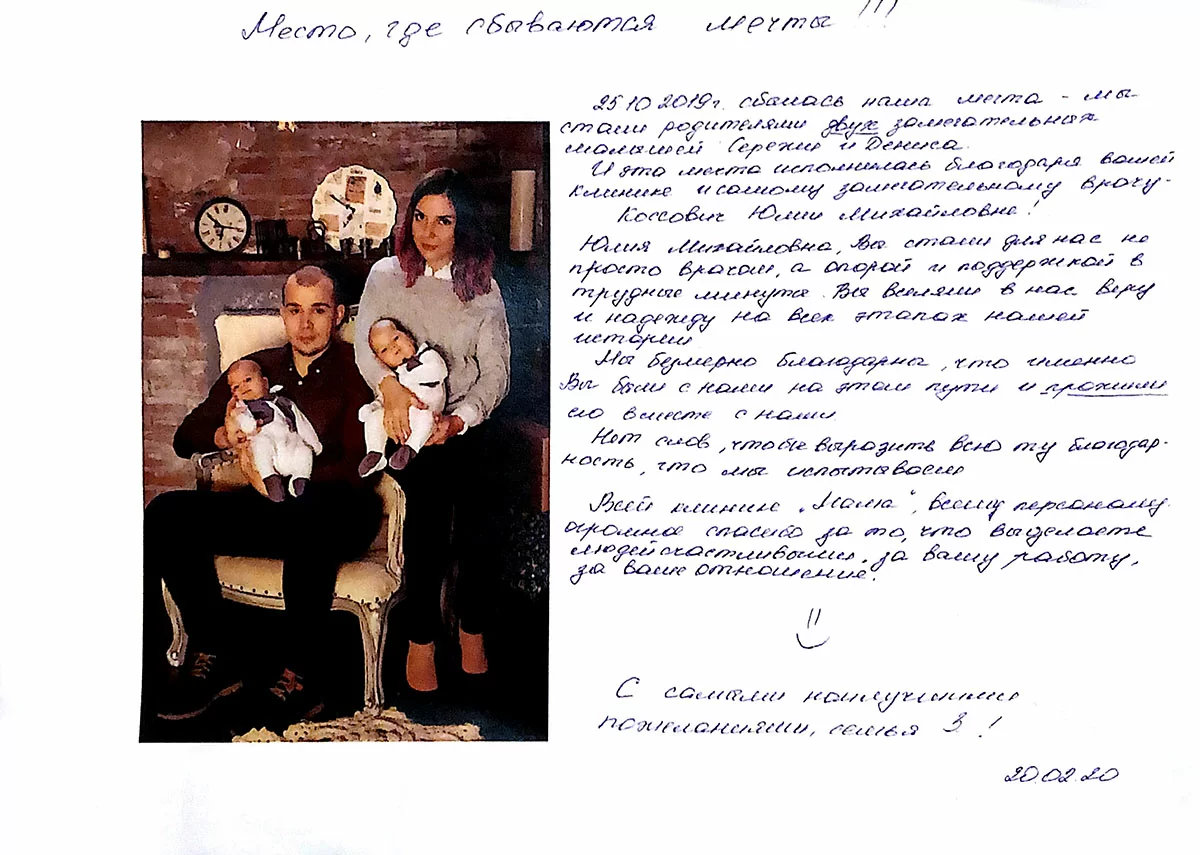 Место, где сбываются мечты !!!
25 10 2019г. сбылась наша мечта - мы
стали родителями двух замечательных
малышей Сережи и Дениса.
И эта мечта исполнилась благодаря вашей
клинике и самому замечательному врачу -
Коссович Юлии Михайловне!
Юлия Михайловна, Вы стали для нас не
просто врачом, а опорой и поддержкой в
трудные минуты. Вы вселяли в нас веру
и надежду на всех этапах нашей
истории
Мы безмерно благодарны, что именно
Вы были с нами на этом пути и прожили
его вместе с нами
Нет слов, чтобы выразить всю ту благодар-
ность, что мы испытываем
Всей клинике „Мама“, всему персоналу
огромное спасибо за то, что вы делаете
людей счастливыми, за вашу работу,
за ваше отношение.
С самыми наилучшими
пожеланиями, семья З. !
20.02.20